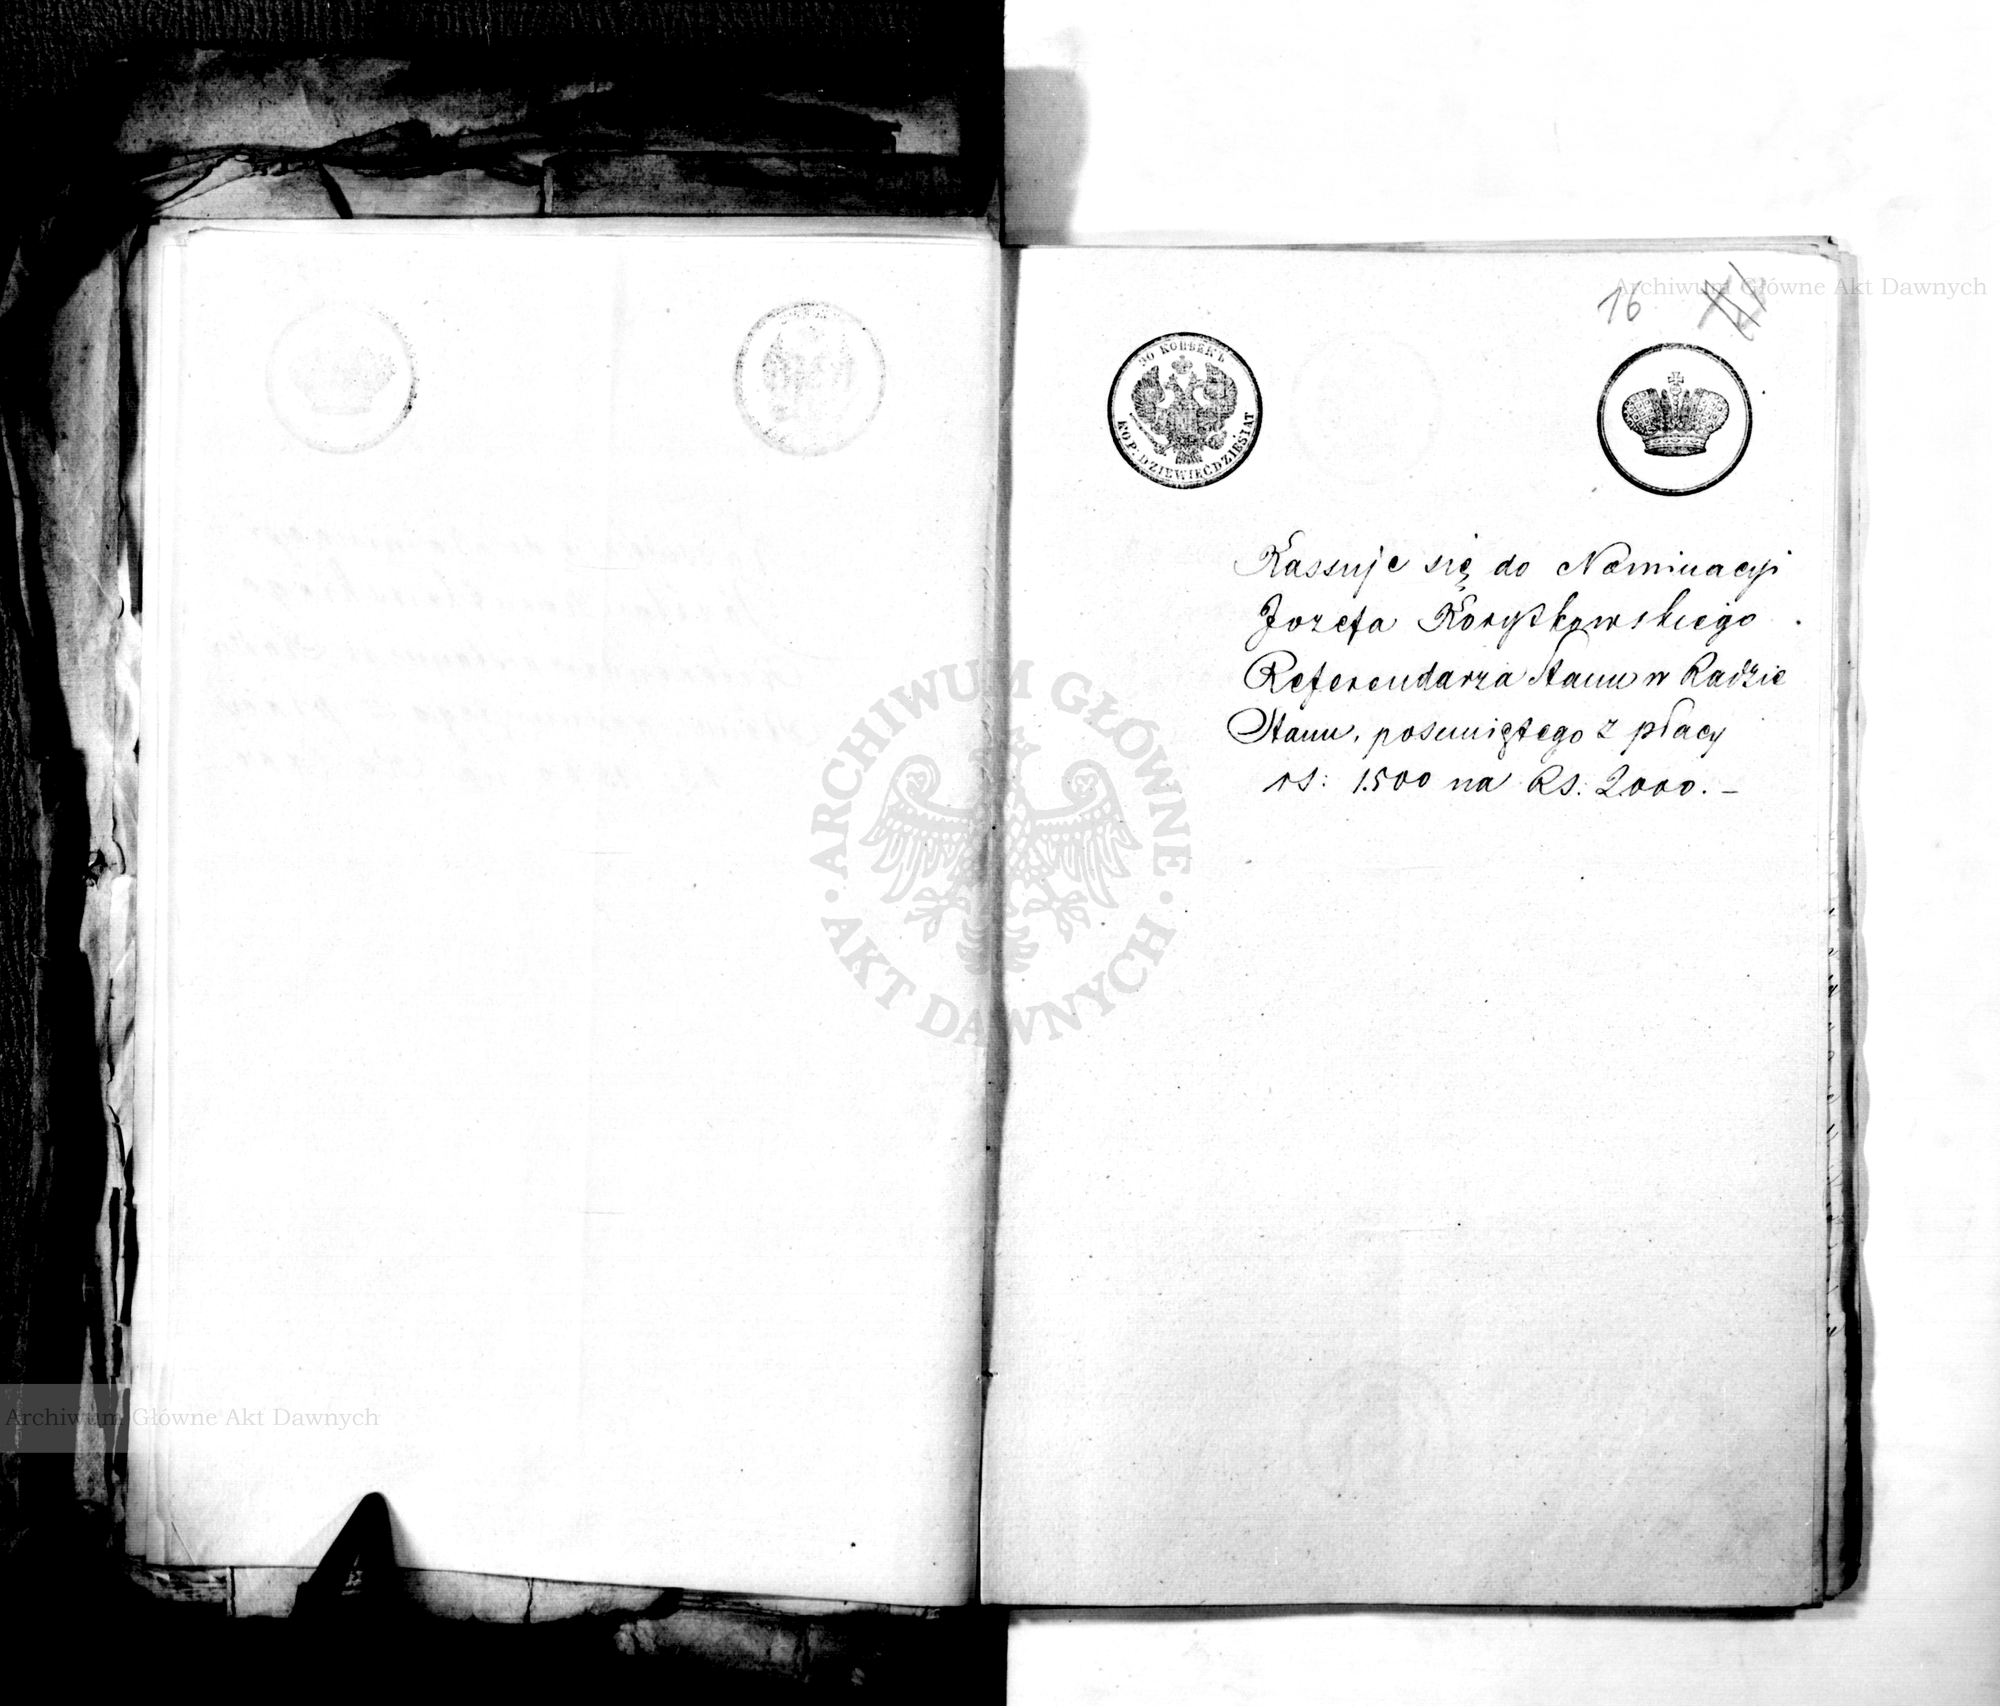 Archiwum Główne Akt Dawnych
16
90 КОПѢЕКЪ
KOP. DZIEWIĘĆDZIESIĄT
Kassuje się do Nominacyi
Jozefa Korytkowskiego
Referendarza Stanu w Radzie
Stanu, posuniętego z płacy
rs: 1500 na Rs: 2000. –
ARCHIWUM GŁÓWNE
AKT DAWNYCH
Archiwum Główne Akt Dawnych